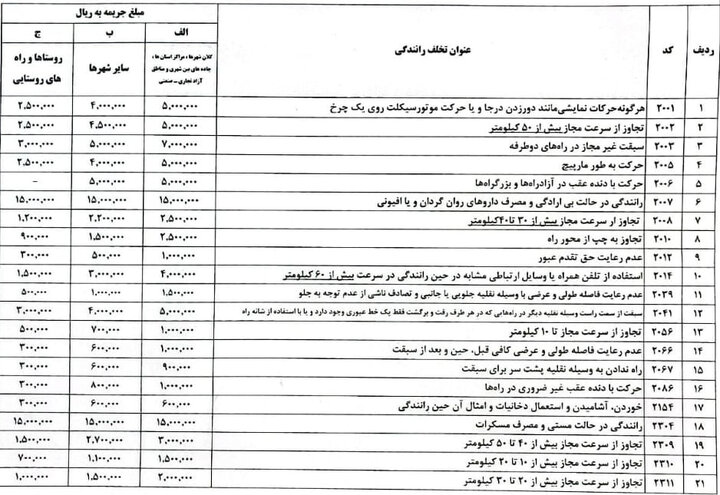 ردیف | کد | عنوان تخلف رانندگی | مبلغ جریمه به ریال
الف | ب | ج
کلان شهرها ، مراکز استان ها ، جاده های بین شهری و مناطق آزاد تجاری – صنعتی | سایر شهرها | روستاها و راه های روستایی
۱ | ۲۰۰۱ | هرگونه حرکات نمایشی مانند دور زدن درجا و یا حرکت موتورسیکلت روی یک چرخ | ۵,۰۰۰,۰۰۰ | ۴,۰۰۰,۰۰۰ | ۲,۵۰۰,۰۰۰
۲ | ۲۰۰۲ | تجاوز از سرعت مجاز بیش از ۵۰ کیلومتر | ۵,۰۰۰,۰۰۰ | ۴,۵۰۰,۰۰۰ | ۲,۵۰۰,۰۰۰
۳ | ۲۰۰۳ | سبقت غیر مجاز در راه‌های دوطرفه | ۷,۰۰۰,۰۰۰ | ۵,۰۰۰,۰۰۰ | ۳,۰۰۰,۰۰۰
۴ | ۲۰۰۵ | حرکت به طور مارپیچ | ۵,۰۰۰,۰۰۰ | ۴,۰۰۰,۰۰۰ | ۲,۵۰۰,۰۰۰
۵ | ۲۰۰۶ | حرکت با دنده عقب در آزادراه‌ها و بزرگراه‌ها | ۵,۰۰۰,۰۰۰ | ۵,۰۰۰,۰۰۰ | –
۶ | ۲۰۰۷ | رانندگی در حالت بی ارادگی و مصرف داروهای روان گردان و یا افیونی | ۱۵,۰۰۰,۰۰۰ | ۱۵,۰۰۰,۰۰۰ | ۱۵,۰۰۰,۰۰۰
۷ | ۲۰۰۸ | تجاوز از سرعت مجاز بیش از ۳۰ تا ۴۰کیلومتر | ۲,۵۰۰,۰۰۰ | ۲,۲۰۰,۰۰۰ | ۱,۲۰۰,۰۰۰
۸ | ۲۰۱۰ | تجاوز به چپ از محور راه | ۲,۵۰۰,۰۰۰ | ۱,۵۰۰,۰۰۰ | ۹۰۰,۰۰۰
۹ | ۲۰۱۲ | عدم رعایت حق تقدم عبور | ۱,۰۰۰,۰۰۰ | ۵۰۰,۰۰۰ | ۳۰۰,۰۰۰
۱۰ | ۲۰۱۴ | استفاده از تلفن همراه یا وسایل ارتباطی مشابه در حین رانندگی در سرعت بیش از ۶۰ کیلومتر | ۴,۰۰۰,۰۰۰ | ۳,۰۰۰,۰۰۰ | ۱,۵۰۰,۰۰۰
۱۱ | ۲۰۳۹ | عدم رعایت فاصله طولی و عرضی با وسیله نقلیه جلویی یا جانبی و تصادف ناشی از عدم توجه به جلو | ۱,۵۰۰,۰۰۰ | ۱,۰۰۰,۰۰۰ | ۵۰۰,۰۰۰
۱۲ | ۲۰۴۱ | سبقت از سمت راست وسیله نقلیه دیگر در راه‌هایی که در هر طرف رفت و برگشت فقط یک خط عبوری وجود دارد و یا با استفاده از شانه راه | ۵,۰۰۰,۰۰۰ | ۴,۰۰۰,۰۰۰ | ۳,۰۰۰,۰۰۰
۱۳ | ۲۰۵۶ | تجاوز از سرعت مجاز تا ۱۰ کیلومتر | ۱,۰۰۰,۰۰۰ | ۷۰۰,۰۰۰ | ۵۰۰,۰۰۰
۱۴ | ۲۰۶۶ | عدم رعایت فاصله طولی و عرضی کافی قبل، حین و بعد از سبقت | ۱,۰۰۰,۰۰۰ | ۶۰۰,۰۰۰ | ۳۰۰,۰۰۰
۱۵ | ۲۰۶۷ | راه ندادن به وسیله نقلیه پشت سر برای سبقت | ۹۰۰,۰۰۰ | ۶۰۰,۰۰۰ | ۳۰۰,۰۰۰
۱۶ | ۲۰۸۶ | حرکت با دنده عقب غیر ضروری در راه‌ها | ۱,۰۰۰,۰۰۰ | ۸۰۰,۰۰۰ | ۳۰۰,۰۰۰
۱۷ | ۲۱۵۴ | خوردن، آشامیدن و استعمال دخانیات و امثال آن حین رانندگی | ۶۰۰,۰۰۰ | ۶۰۰,۰۰۰ | ۳۰۰,۰۰۰
۱۸ | ۲۳۰۴ | رانندگی در حالت مستی و مصرف مسکرات | ۱۵,۰۰۰,۰۰۰ | ۱۵,۰۰۰,۰۰۰ | ۱۵,۰۰۰,۰۰۰
۱۹ | ۲۳۰۹ | تجاوز از سرعت مجاز بیش از ۴۰ تا ۵۰ کیلومتر | ۳,۰۰۰,۰۰۰ | ۲,۷۰۰,۰۰۰ | ۱,۵۰۰,۰۰۰
۲۰ | ۲۳۱۰ | تجاوز از سرعت مجاز بیش از ۱۰ تا ۲۰ کیلومتر | ۱,۵۰۰,۰۰۰ | ۱,۱۰۰,۰۰۰ | ۷۰۰,۰۰۰
۲۱ | ۲۳۱۱ | تجاوز از سرعت مجاز بیش از ۲۰ تا ۳۰ کیلومتر | ۲,۰۰۰,۰۰۰ | ۱,۵۰۰,۰۰۰ | ۱,۰۰۰,۰۰۰